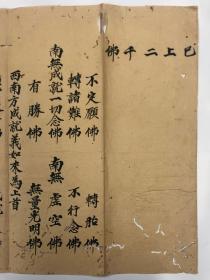 已上二千佛
不定願佛　轉胎佛
轉諸難佛　不行念佛
南無成就一切念佛　南無虛空佛
有勝佛　無量光明佛
西南方成就義如來為上首